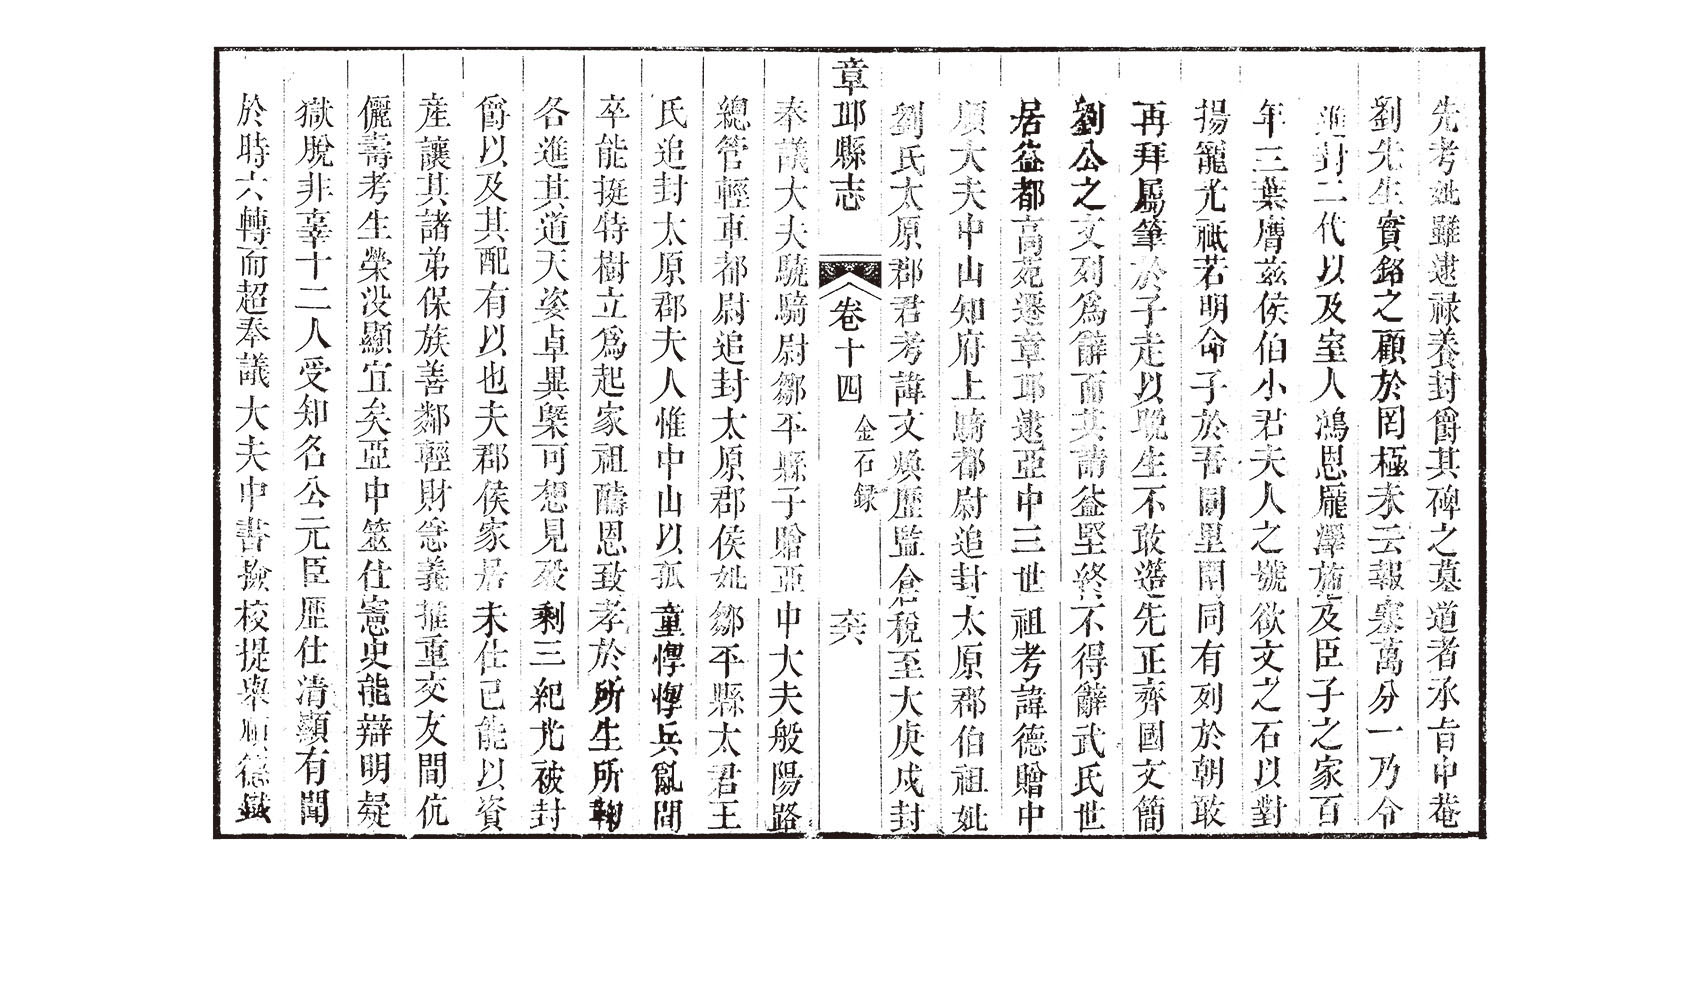 先考妣雖逮祿養封爵其碑之墓道者承旨中菴
劉先生實銘之顧於罔極未云報塞萬分一乃今
進封二代以及室人鴻恩龐澤施及臣子之家百
年三葉膺兹侯伯小君夫人之號欲文之石以對
揚寵光祗若明命子於吾同里閈同有列於朝敢
再拜屬筆於子走以晚生不敢遷先正齊國文簡
劉公之文列爲辭而其請益堅終不得辭武氏世
居益都高苑遷章邱逮亞中三世祖考諱德贈中
順大夫中山知府上騎都尉追封太原郡伯祖妣
劉氏太原郡君考諱文煥歷監倉稅至大庚戌封
章邱縣志
卷十四
金石録
奉議大夫驍騎尉鄒平縣子贈亞中大夫般陽路
總管輕車都尉追封太原郡侯妣鄒平縣太君王
氏追封太原郡夫人惟中山以孤童惸惸兵亂間
卒能挺特樹立爲起家祖疇恩致孝於所生所鞠
各進其道天姿卓異槩可想見歿剩三紀光被封
爵以及其配有以也夫郡侯家居未仕已能以資
產讓其諸弟保族善鄰輕財急義推重交友間伉
儷壽考生榮没顯宜矣亞中筮仕憲史能辯明疑
獄脫非辜十二人受知名公元臣歷仕清顯有聞
於時六轉而超奉議大夫中書撿校提舉順德鐵